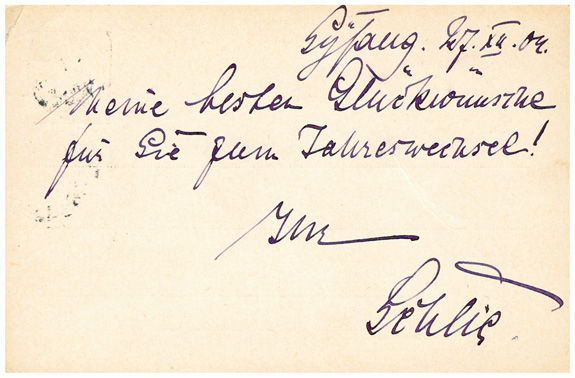 27. XII. 04.
Meine besten Glückwünsche
für Sie zum Jahreswechsel!
Ihr